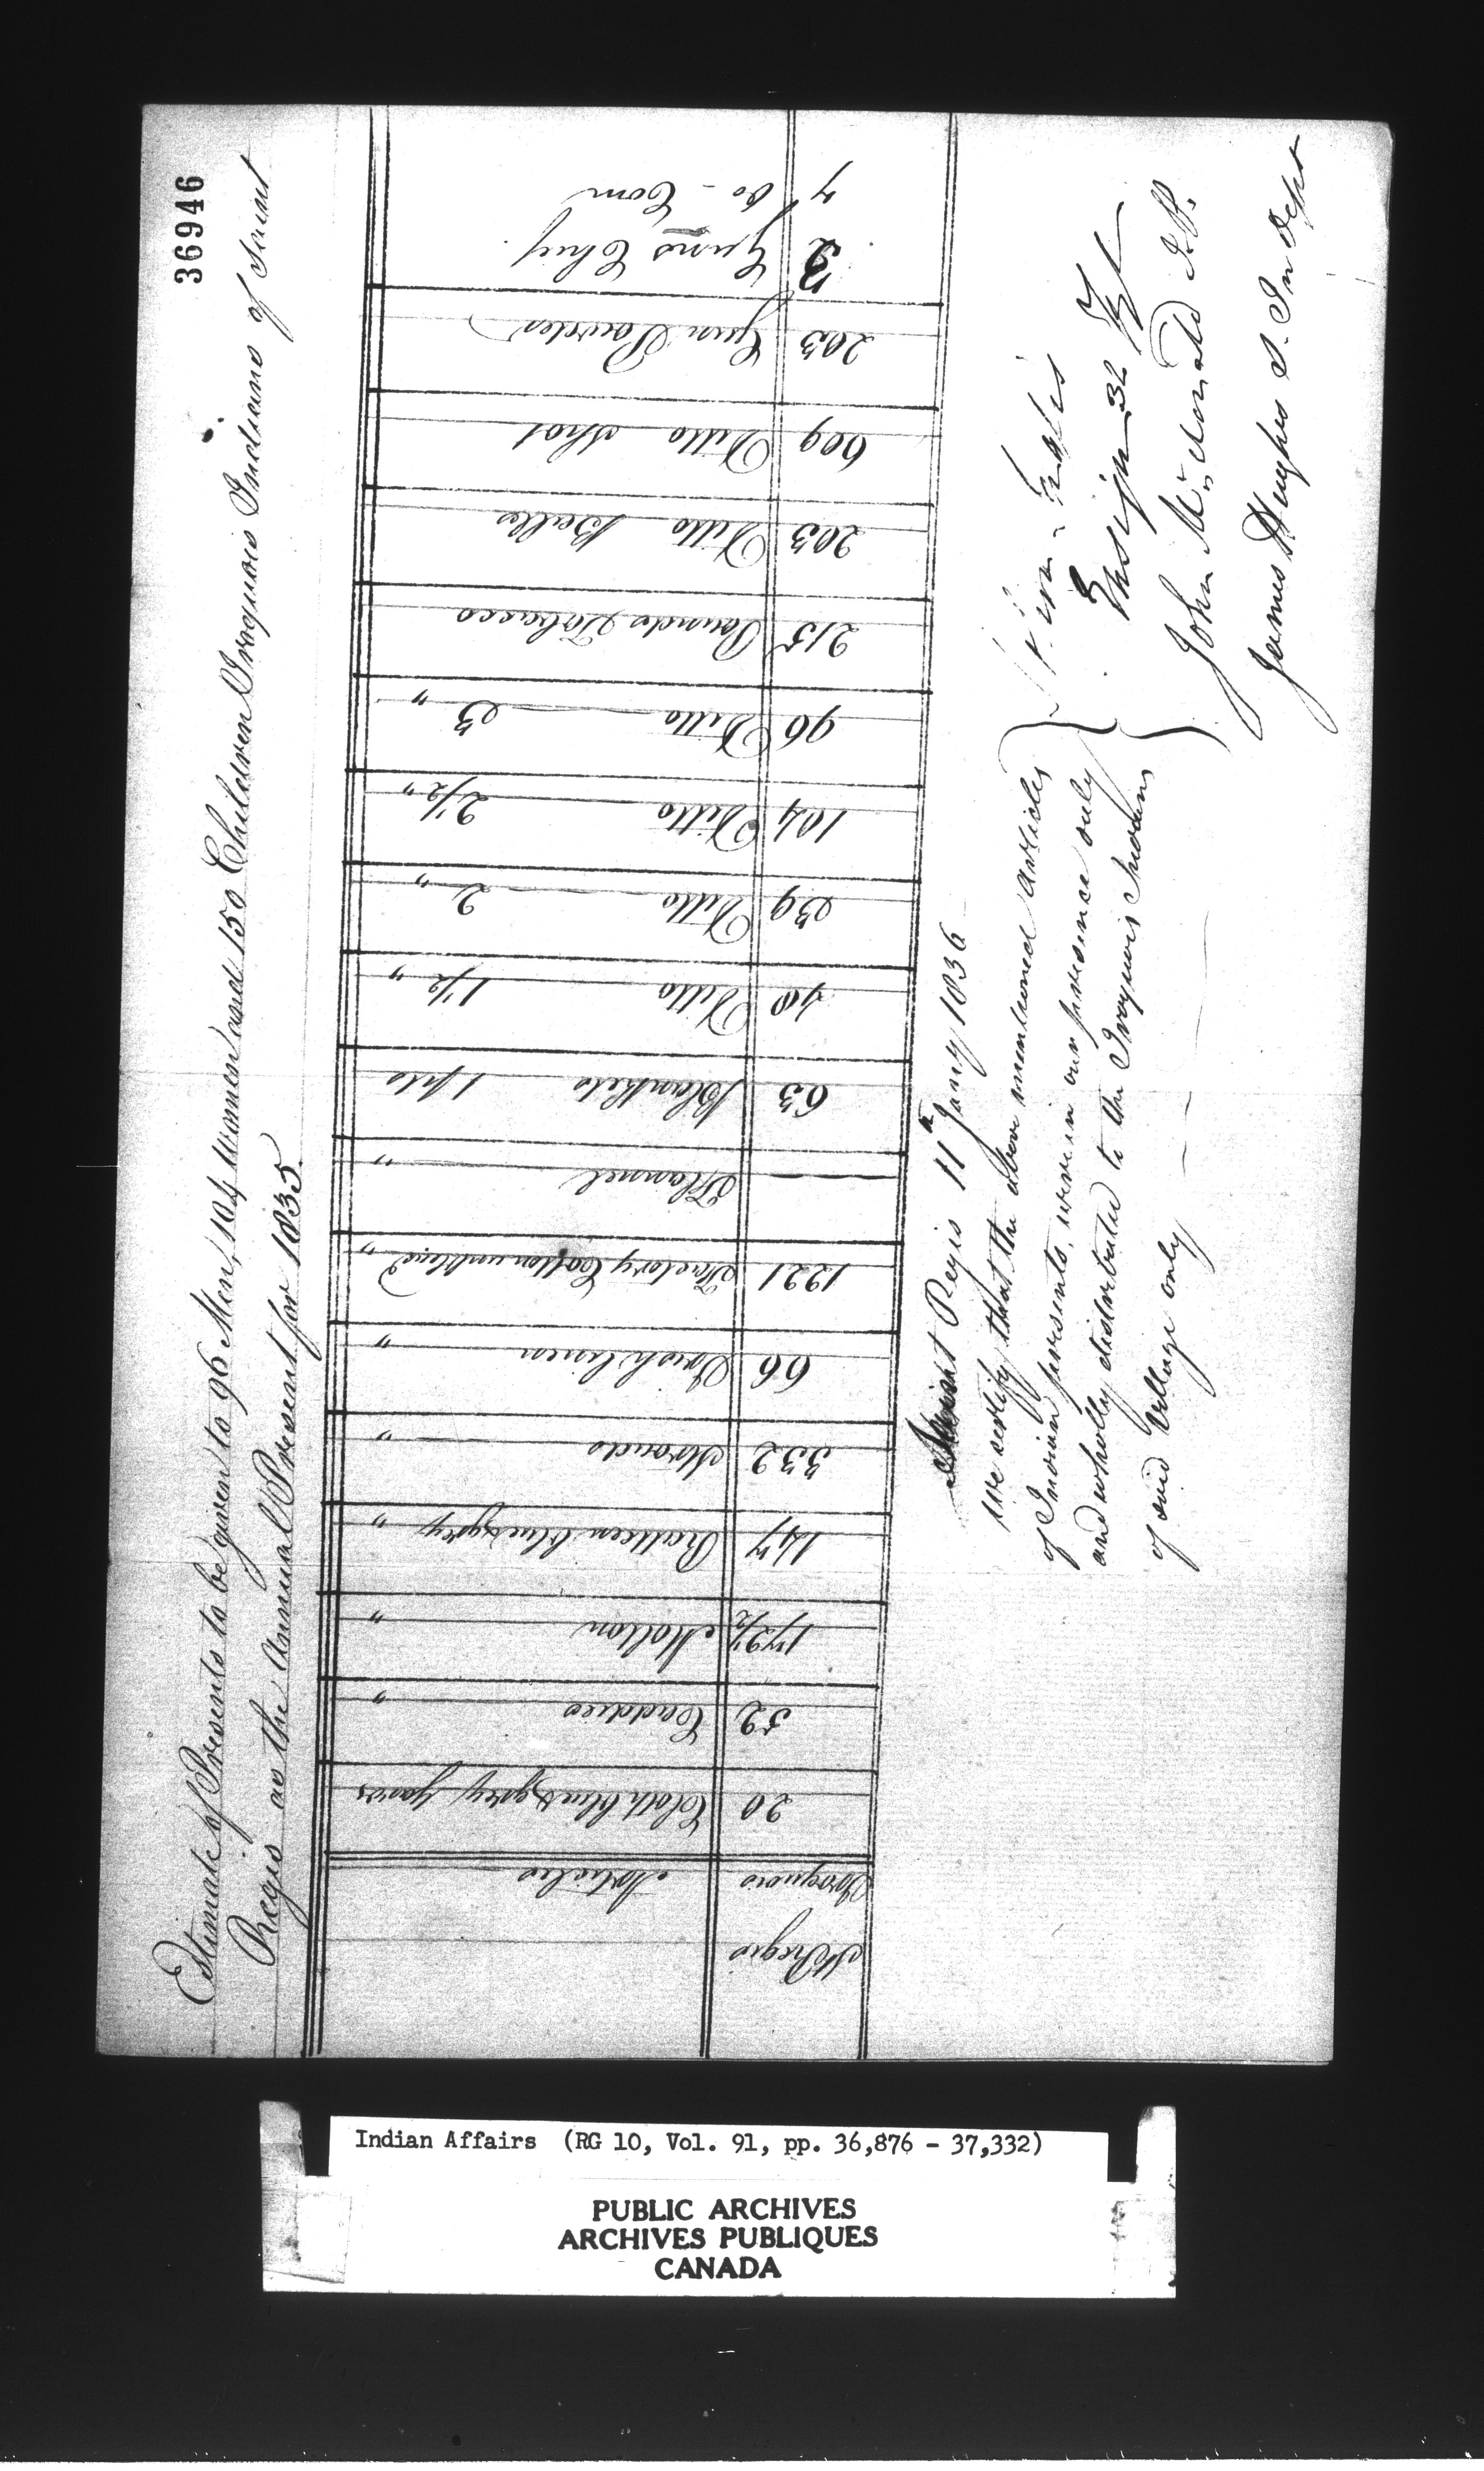 36946
Estimate of Presents to be given to 96 Men, 104 Women and 150 Children Iroquois Indians of Saint
Regis as the Annual Present for 1835
St Regis
Iroquois Articles
20 Cloth blue & grey Yards
52 Caddies "
172 1/2 Molton "
147 Ratteen blue & grey "
332 Strouds "
66 Irish linen "
1221 Factory Cotton unblead "
Flannel "
63 Blankets 1 pts
40 Ditto 1 1/2 "
39 Ditto 2 "
104 Ditto 2 1/2 "
96 Ditto 3 "
215 Pounds Tobacco
203 Ditto Balls
609 Ditto Shot
203 Gun Powder
2 Guns Chief
7 Do - Com
Saint Regis 11 Jany 1836
We certify that the above mentioned articles
of Indian presents, were in our presence only
and wholly distributed to the Iroquois Indians
of said Village only
Ensign 32 Regt
John McDonald J.P.
James Hughes S. In Dept
Indian Affairs (RG 10, Vol. 91, pp. 36,876 - 37,332)
PUBLIC ARCHIVES
ARCHIVES PUBLIQUES
CANADA